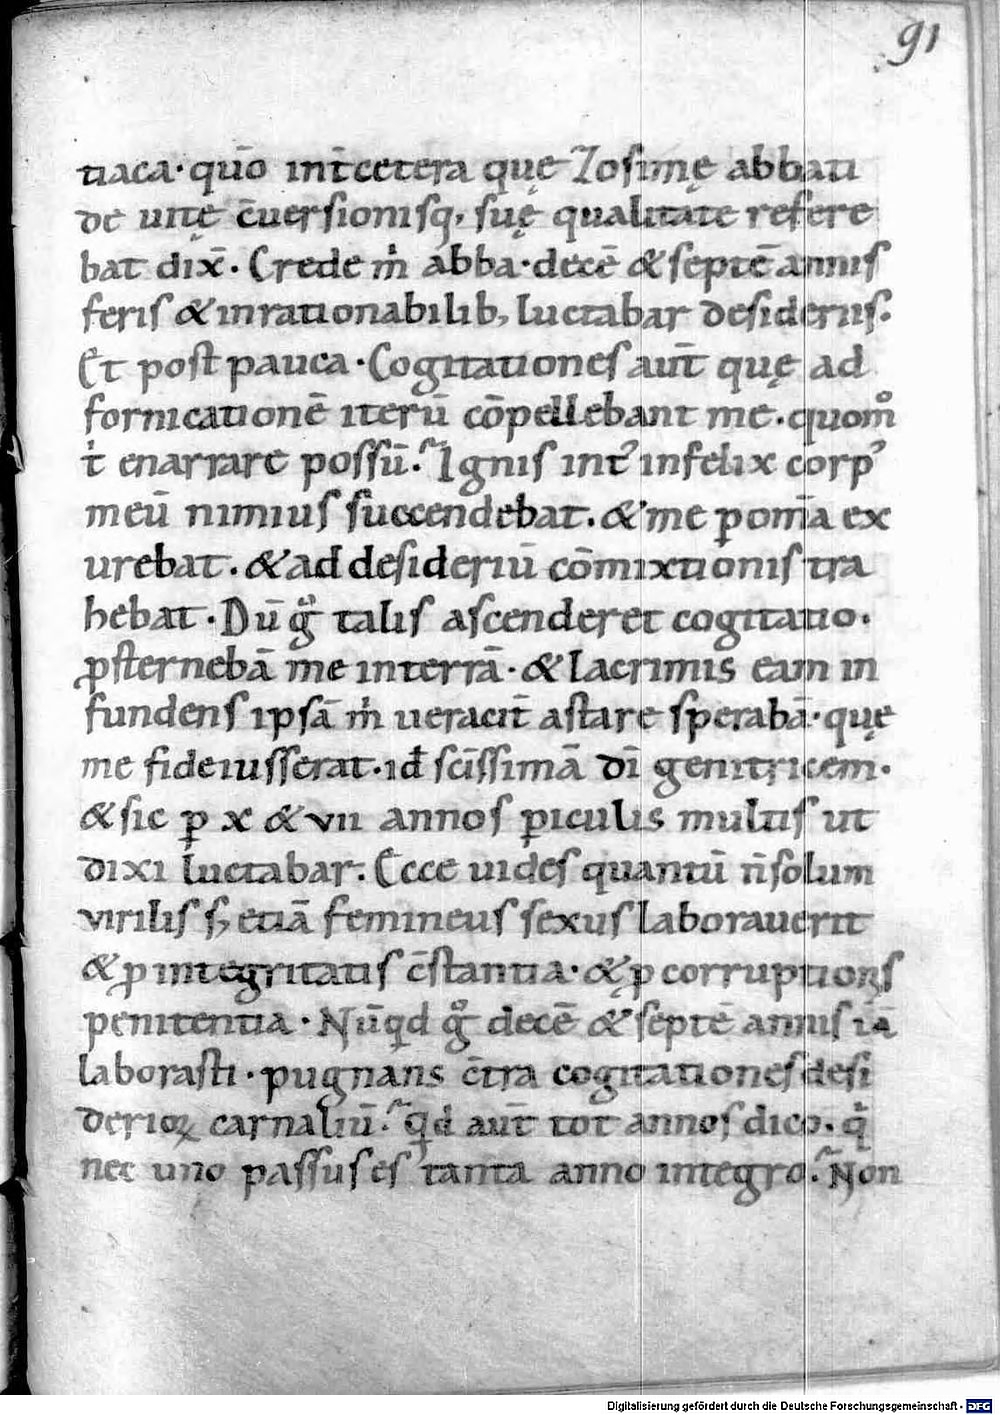 91
tiaca· quō int̄ cetera quę Zosimę abbati
de uitę c̄uersionisq; suę qualitate refere
bat dix̄. Crede m̍ abba· decē & septē annis
feris & inrationabilib; luctabar desideriis.
Et post pauca· Cogitationes aut̄ quę ad
fornicationē iterū cōpellebant me. quom̊
t̍ enarrare possū.᷑ Ignis int᷑ infelix corp᷒
meū nimius succendebat. & me p̱ om̄ia ex
urebat. & ad desideriū cōmixtionis tra
hebat· Dū g̊ talis ascenderet cogitatio.
ꝓsternebā me in terrā· & lacrimis eam in
fundens ipsā m̍ ueracit̄ astare sperabā· quę
me fideiusserat. id̄ sc̄issimā dī genitricem.
& sic p̱ x & vii annos p̱iculis multis ut
dixi luctabar. Ecce uides quantū n̄ solum
virilis s; etiā femineus sexus laborauerit
& ꝓ integritatis c̄stantia· & ꝓ corruptionis
penitentia· Nūqd g̊ decē & septē annis iā
laborasti· pugnans c̄tra cogitationes desi
derioꝝ carnaliū.᷑ qd aut̄ tot annos dico. q̍
nec uno passus es tanta anno integro.᷑ Non
Digitalisierung gefördert durch die Deutsche Forschungsgemeinschaft - DFG